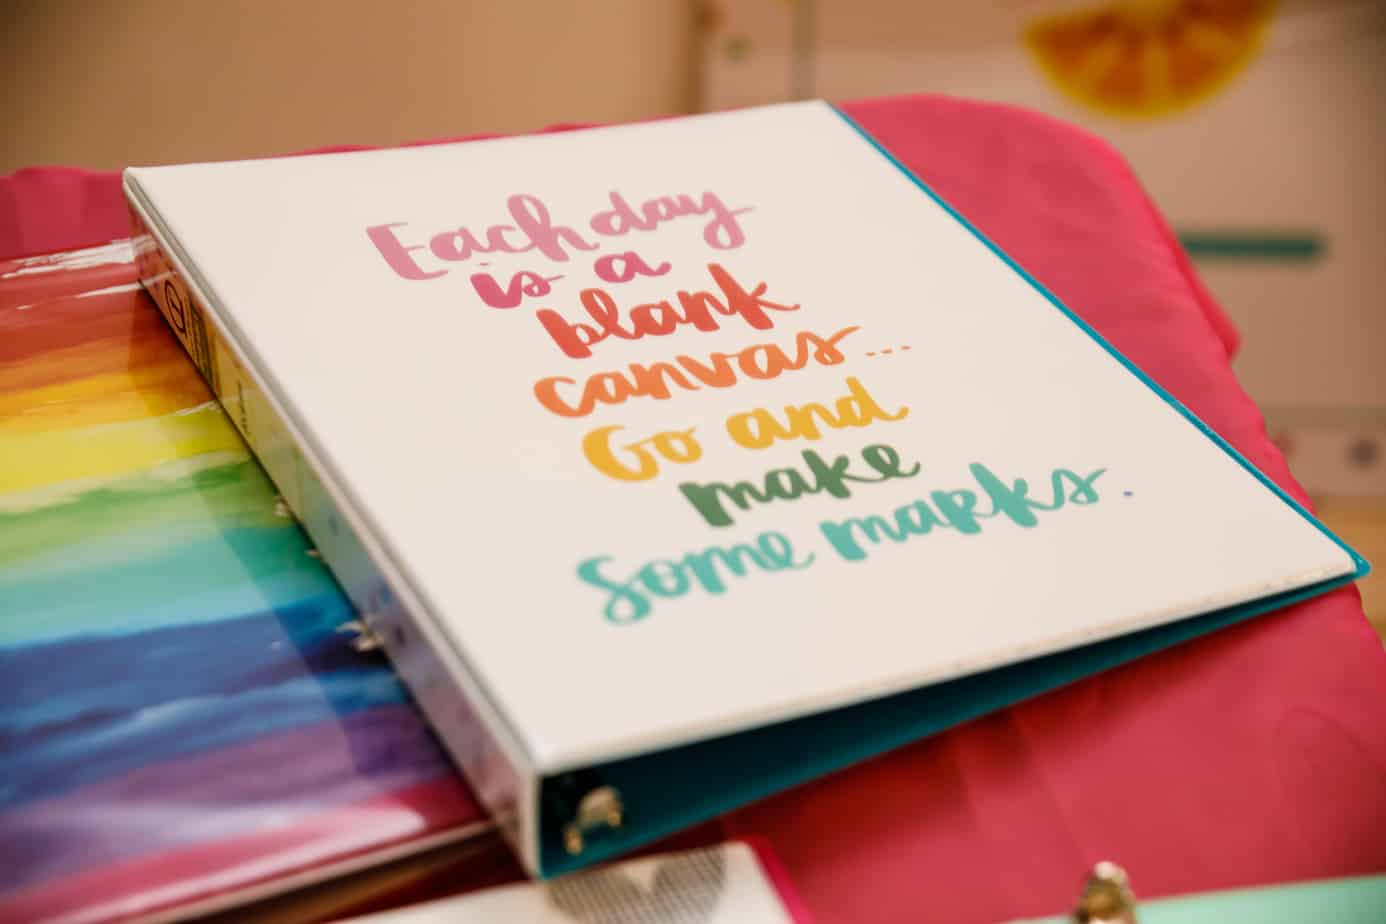 Each day
is a
blank
canvas...
Go and
make
Some marks.